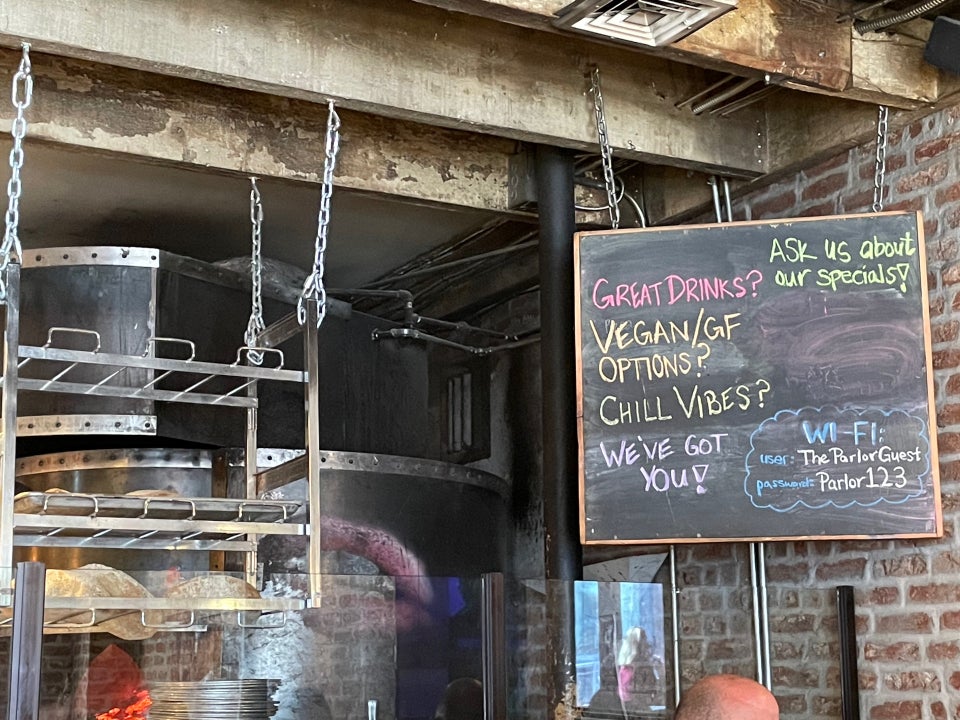 ASK us about
our specials!
GREAT DRINKS?
VEGAN/GF
OPTIONS?
CHILL VIBES?
WE'VE GOT
YOU!
WI-FI:
user: TheParlorGuest
password: Parlor123